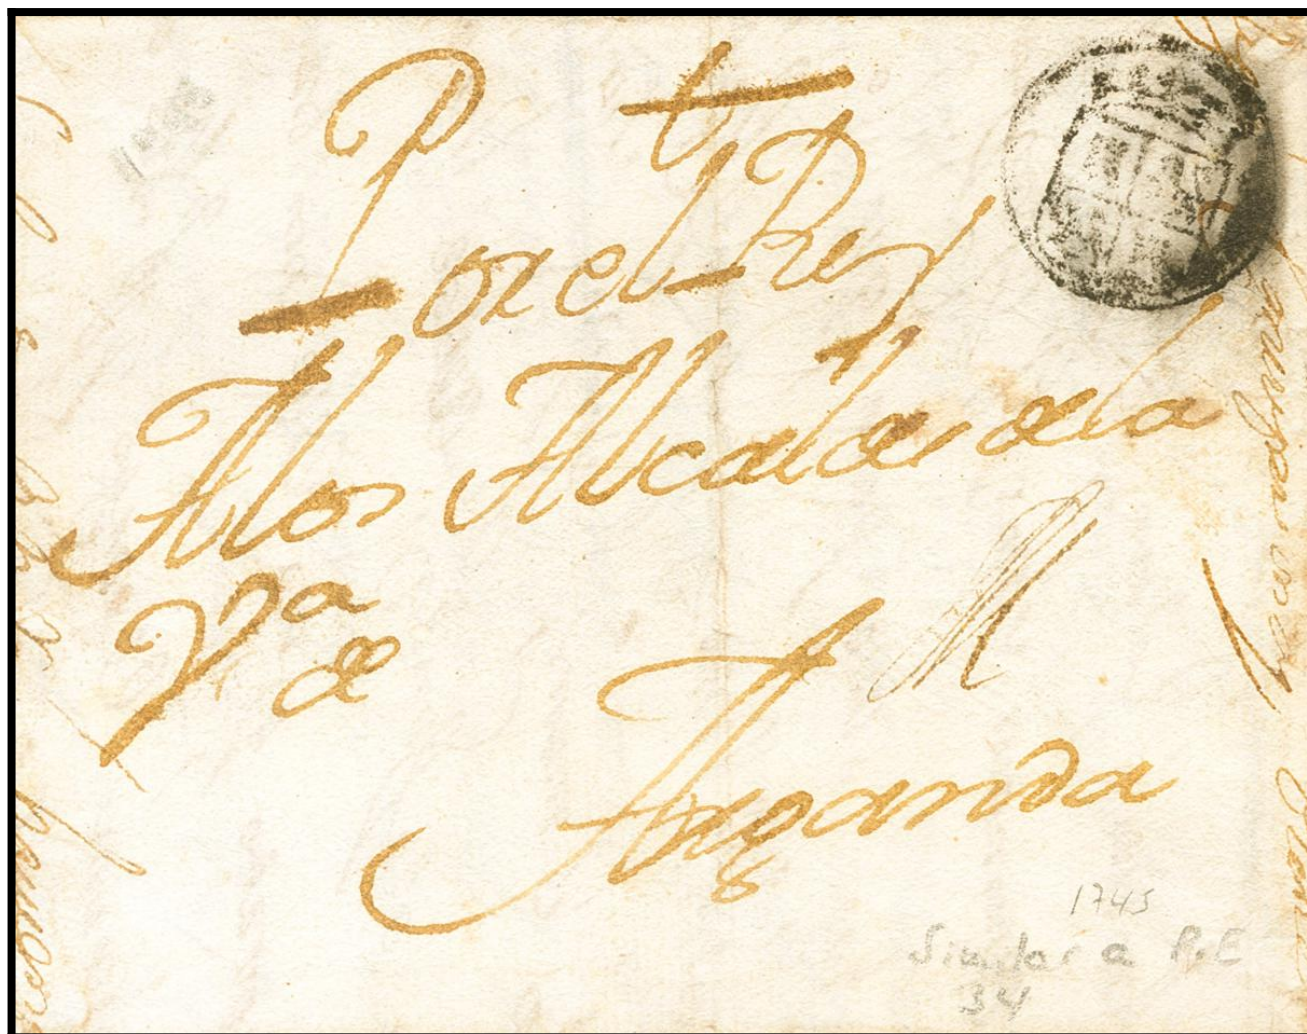 t
Por el Rey
A los Alcaldes de la
Va
de
Arganda
1745
Similar a P.E
34